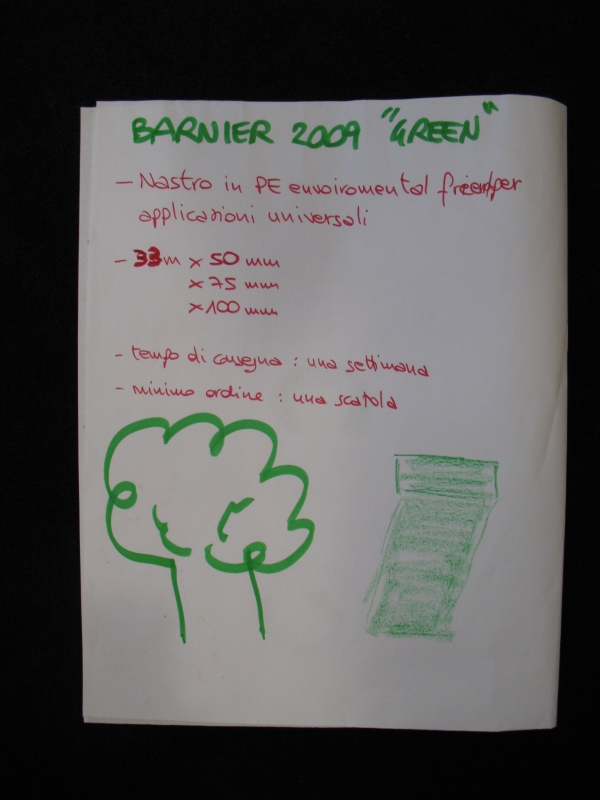 BARNIER 2009 "GREEN"
- Nastro in PE enviromental friend per
applicazioni universali
- 33m x 50 mm
x 75 mm
x 100 mm
- tempo di consegna : una settimana
- minimo ordine : una scatola